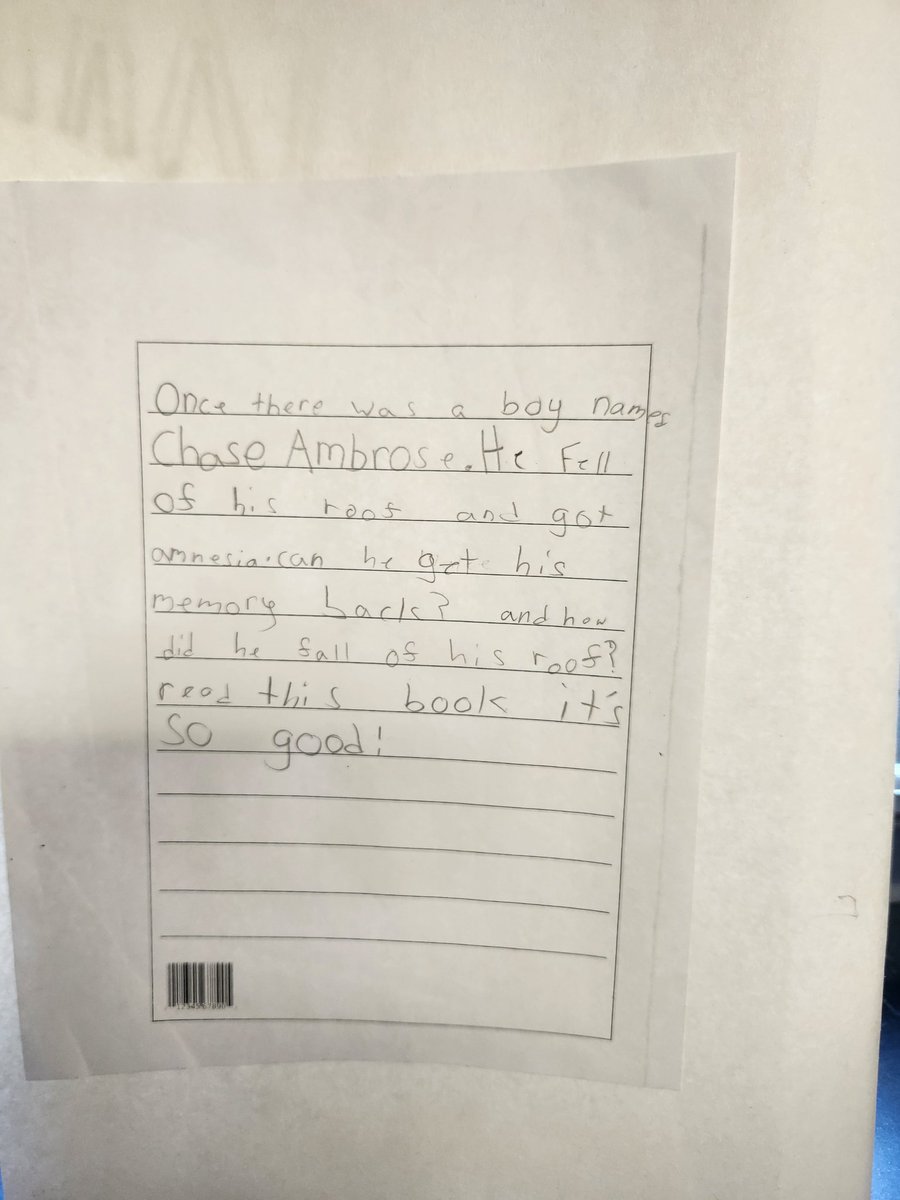 Once there was a boy names
Chase Ambrose. He Fell
of his roof and got
amnesia. can he get his
memory back? and how
did he fall of his roof?
read this book it's
so good!
1234567890